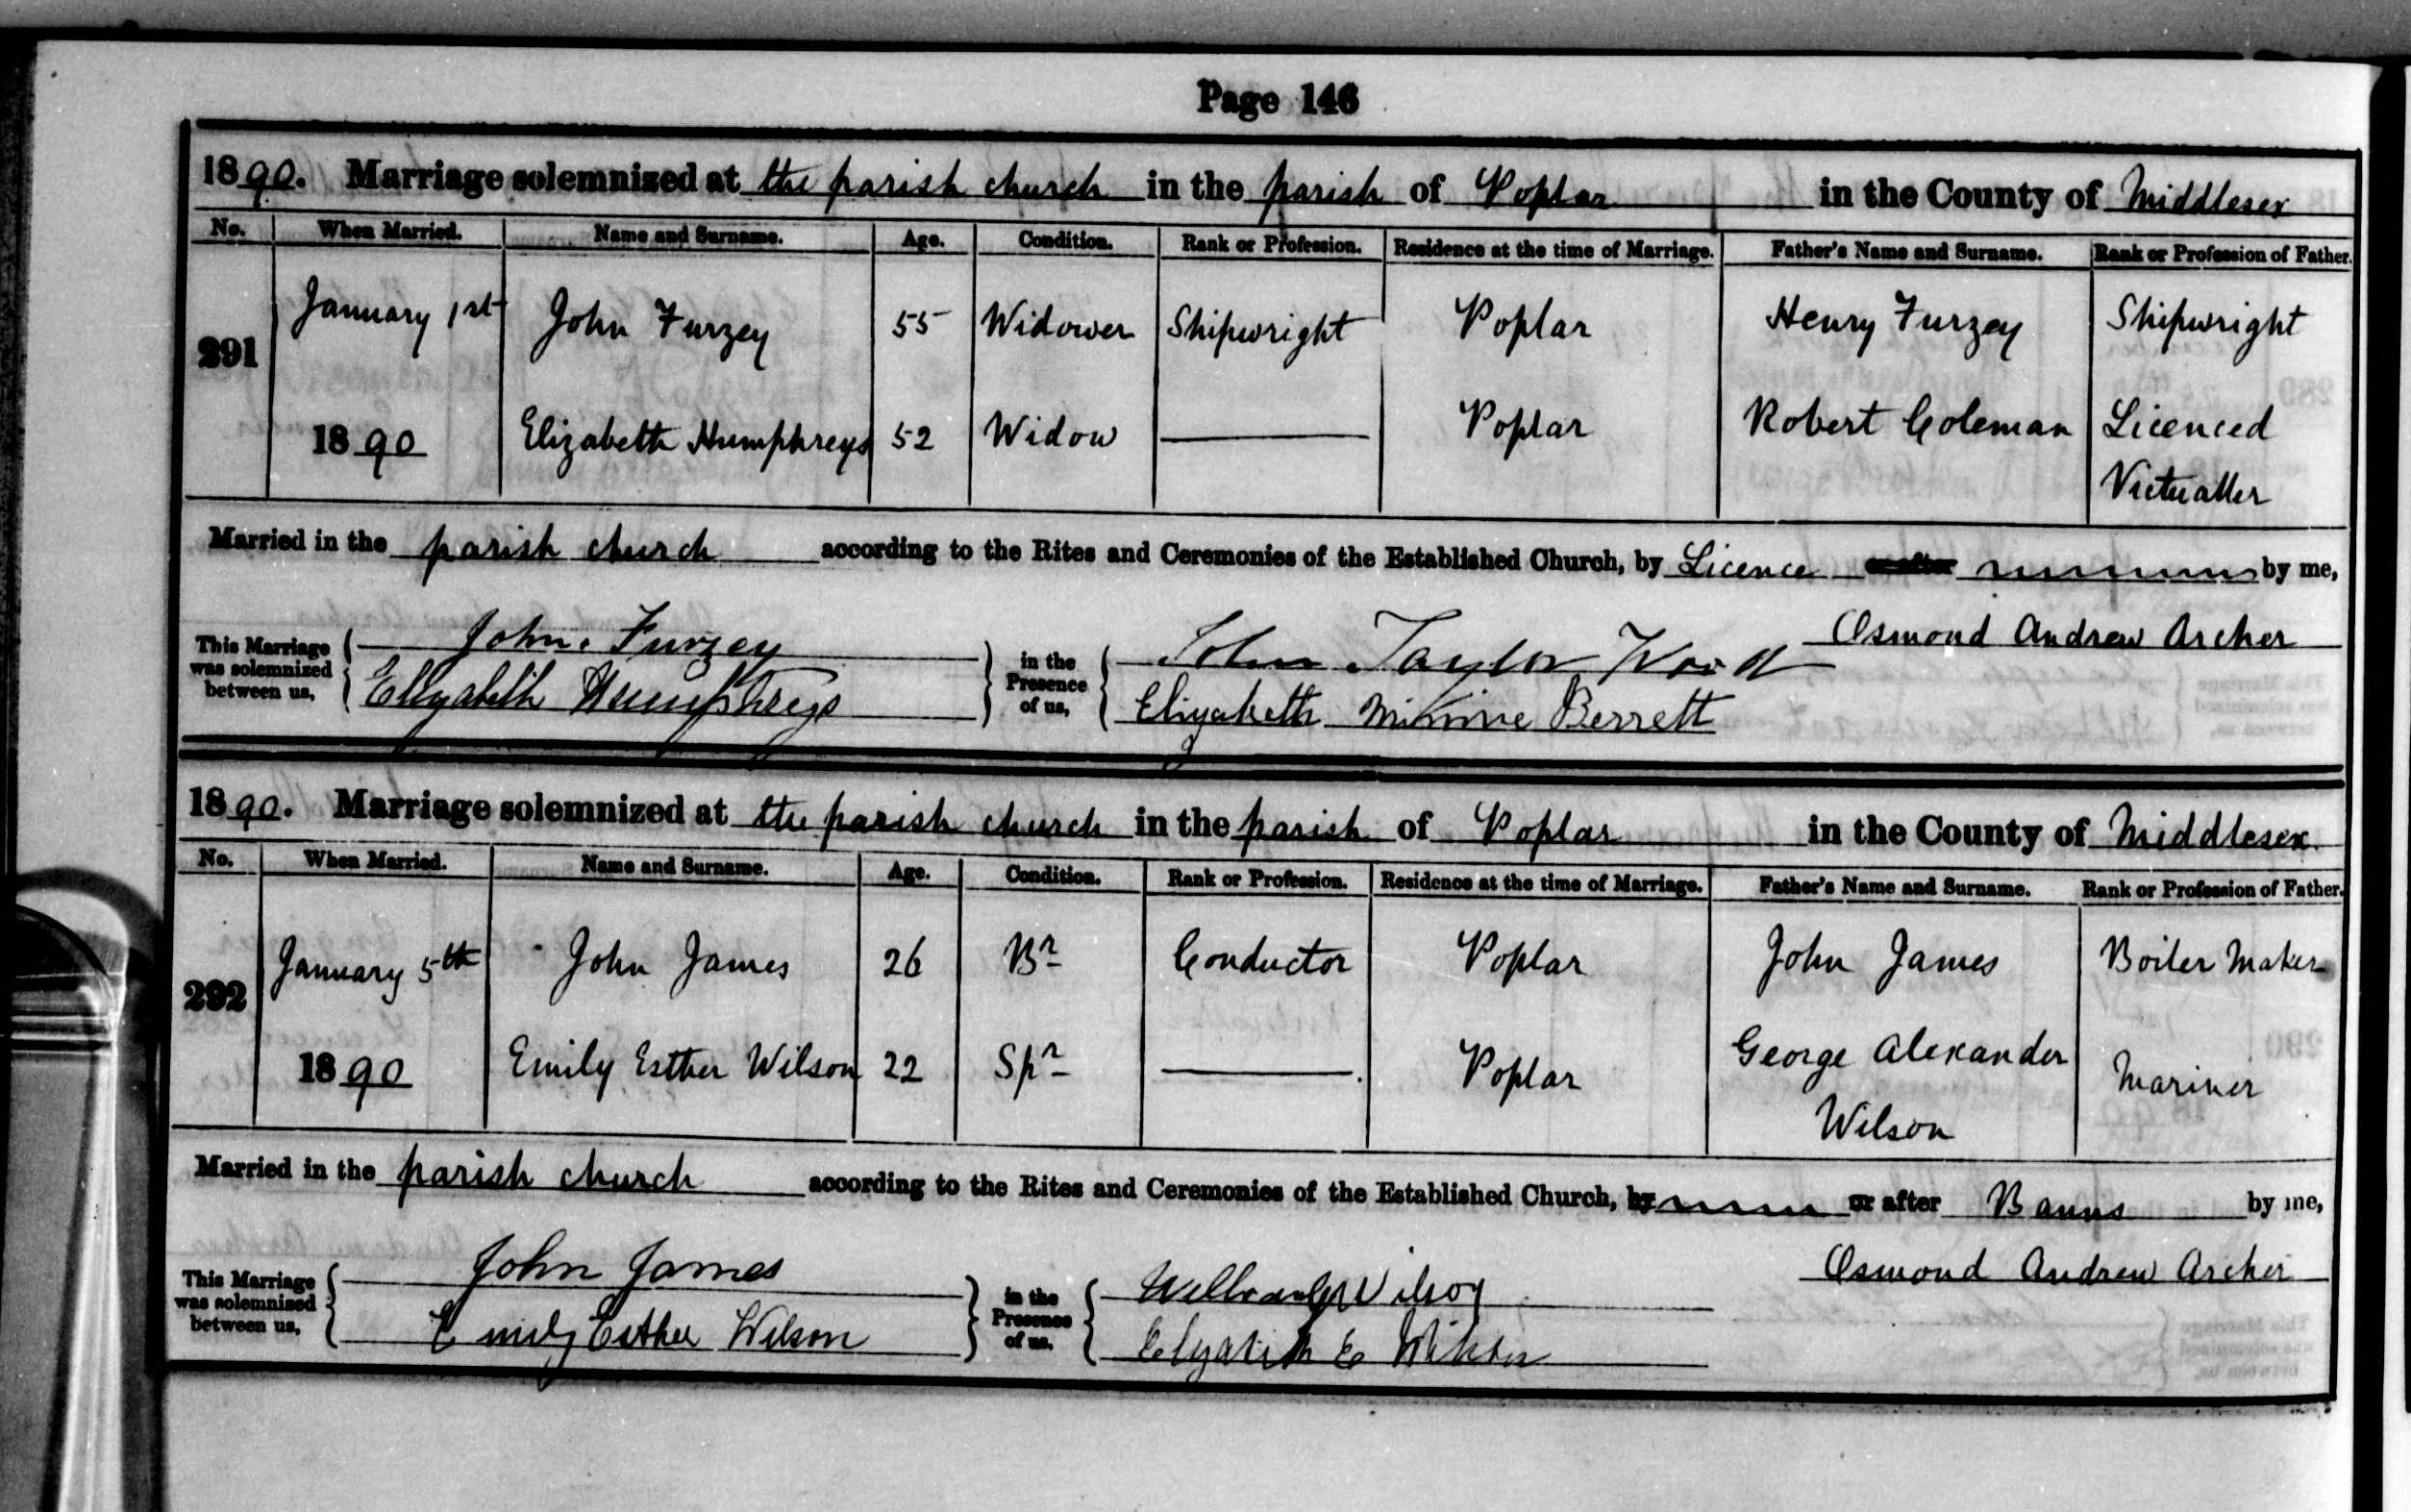 Page 146
1890. Marriage solemnized at the parish church in the parish of Poplar in the County of Middlesex
No. When Married. Name and Surname. Age. Condition. Rank or Profession. Residence at the time of Marriage. Father's Name and Surname. Rank or Profession of Father.
291 January 1st John Furzey 55 Widower Shipwright Poplar Henry Furzey Shipwright
1890 Elizabeth Humphreys 52 Widow Poplar Robert Coleman Licenced
Victualler
Married in the parish church according to the Rites and Ceremonies of the Established Church, by Licence or after by me,
Osmond Andrew Archer
This Marriage was solemnized between us, John Furzey in the Presence of us, John Taylor Wood
Elizabeth Humphreys Elizabeth Minnie Berrett
1890. Marriage solemnized at the parish church in the parish of Poplar in the County of Middlesex.
No. When Married. Name and Surname. Age. Condition. Rank or Profession. Residence at the time of Marriage. Father's Name and Surname. Rank or Profession of Father.
292 January 5th John James 26 Br Conductor Poplar John James Boiler Maker
1890 Emily Esther Wilson 22 Spr Poplar George Alexander Mariner
Wilson
Married in the parish church according to the Rites and Ceremonies of the Established Church, by or after Banns by me,
Osmond Andrew Archer
This Marriage was solemnized between us, John James in the Presence of us, Wilson
Emily Esther Wilson E